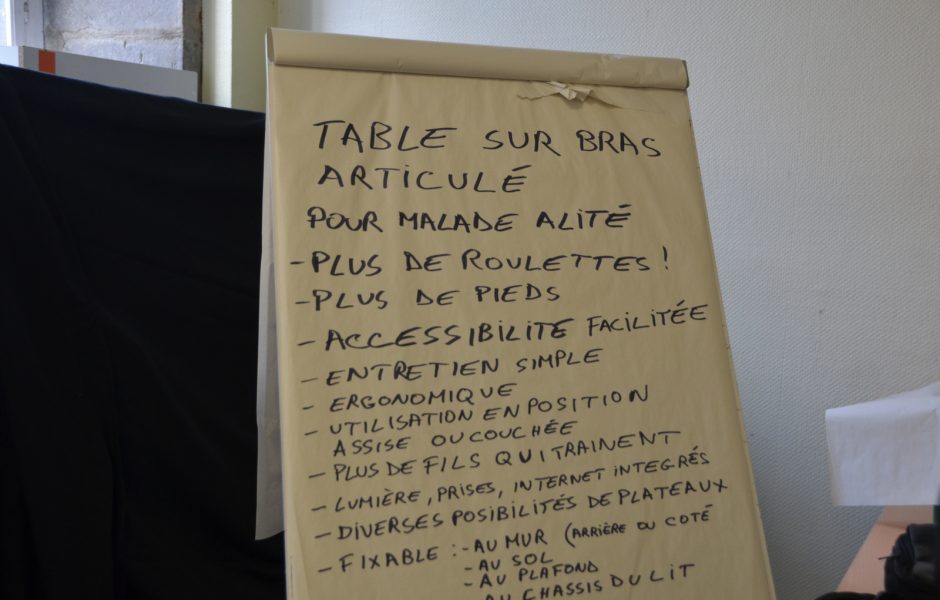 TABLE SUR BRAS
ARTICULÉ
POUR MALADE ALITÉ
- PLUS DE ROULETTES !
- PLUS DE PIEDS
- ACCESSIBILITE FACILITÉE
- ENTRETIEN SIMPLE
- ERGONOMIQUE
- UTILISATION EN POSITION
ASSISE OU COUCHÉE
- PLUS DE FILS QUI TRAINENT
- LUMIÈRE, PRISES, INTERNET INTEGRÉS
- DIVERSES POSIBILITÉS DE PLATEAUX
- FIXABLE : - AU MUR (ARRIÈRE OU COTÉ
- AU SOL
- AU PLAFOND
- AU CHASSIS DU LIT